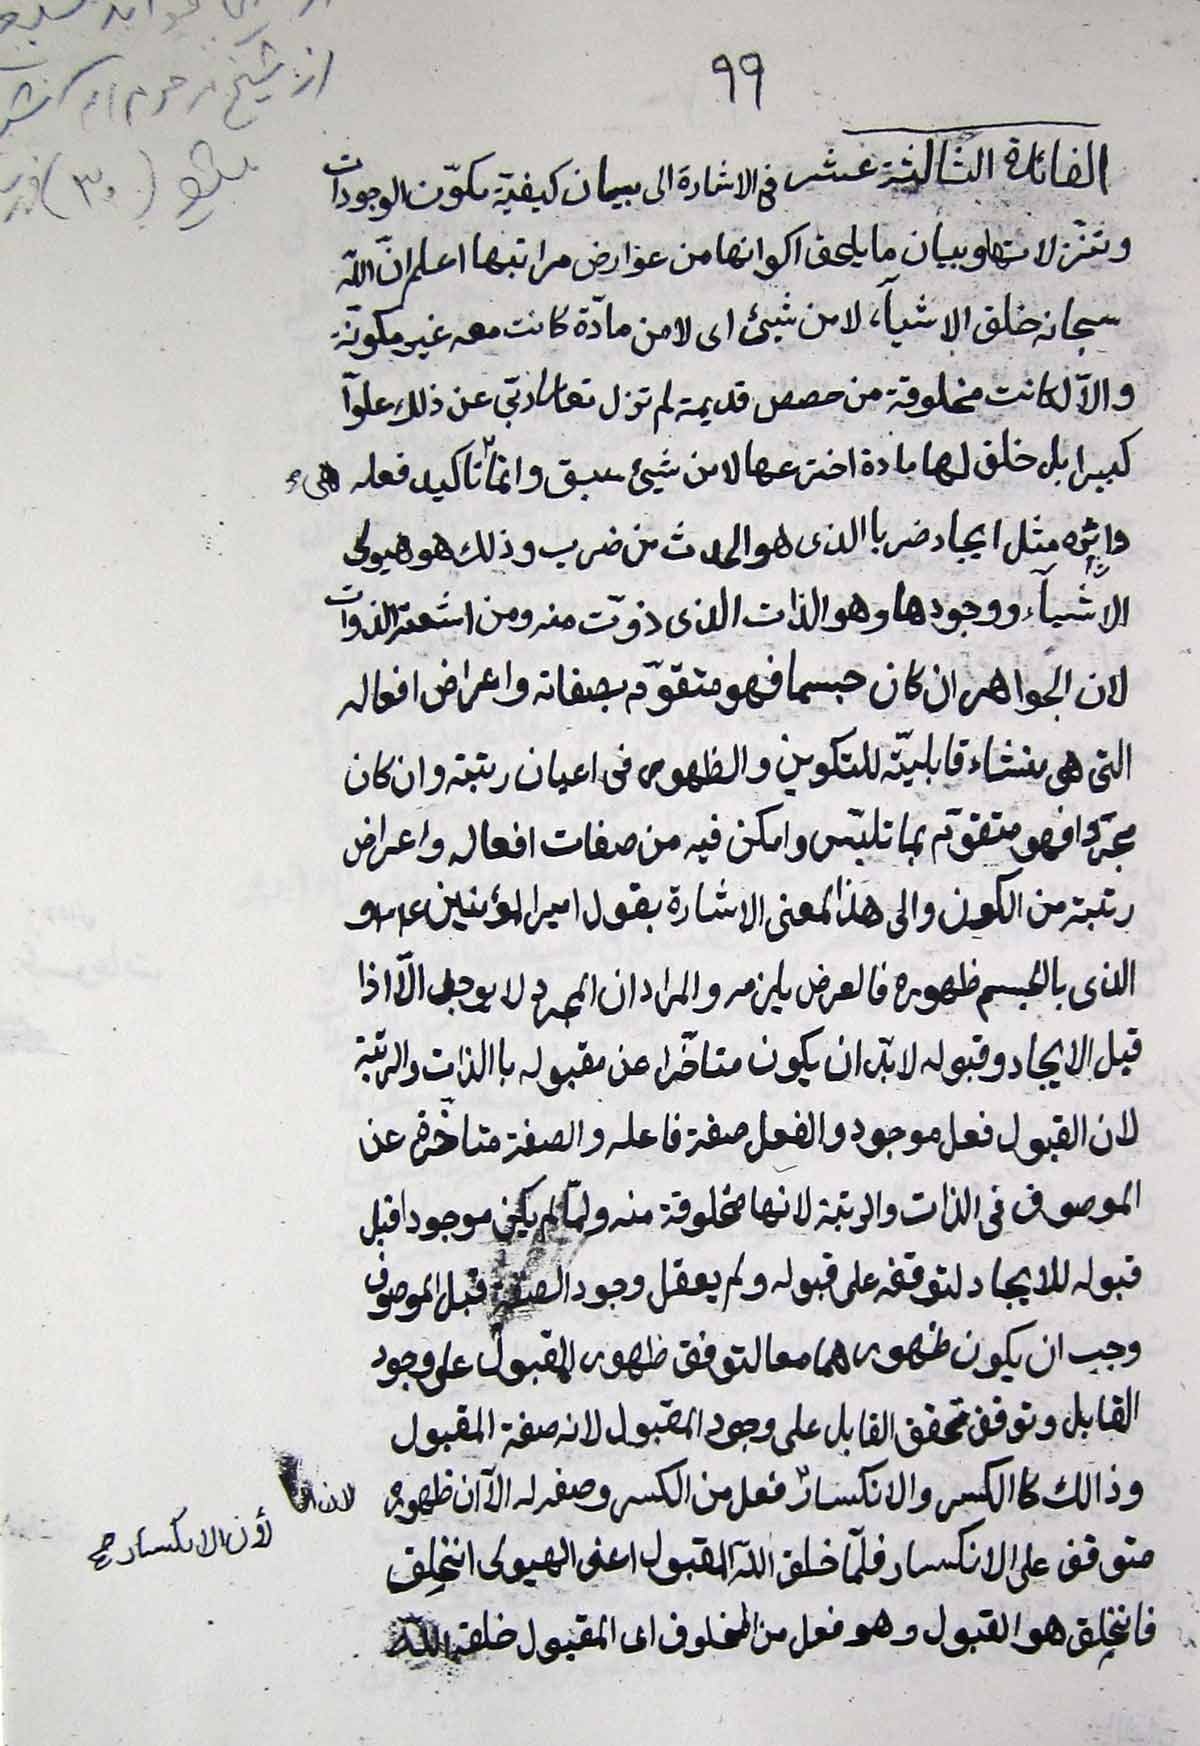 از شیخ مرحوم
(۳۰)
۹۹
الفائدة الثالثة عشر فی الاشارة الی بیان کیفیّة تکوّن الوجودات
وتنزّلاتها وبیان ما یلحق اکوانها من عوارض مراتبها اعلم انّ اللّه
سبحانه خلق الاشیآء، لا من شیئ ای لا من مادّة کانت معه غیر مکوّنة
والّا لکانت مخلوقة من حصص قدیمة لم تزل تعالی ربّی عن ذلک علوّاً
کبیرا بل خلق لها مادة اخترعها لا من شیئ سبق وانّما تاکید فعله
واثره مثل ایجاد ضربا الذی هو الحدث من ضرب وذلک هو هیولی
الاشیآء ووجودها وهو الذات الذی ذوّت منه ومن اشعته الذوات
لان الجواهر ان کان جسما فهو متقوّم بصفاته واعراض افعاله
التی هی منشاء قابلیّته للتکوین والظهور فی اعیان رتبته وان کان
مجرّدا فهو متقوّم بما تلبّس وامکن فیه من صفات افعاله واعراض
رتبته من الکون والی هذا المعنی الاشارة بقول امیر المؤمنین ع و
الذی بالجسم ظهوره فالعرض یلزمه والمراد ان المجرد لا یوجد الّا اذا
قبل الایجاد وقبوله لابدّ ان یکون متاخّرا عن مقبوله باالذات والرتبة
لان القبول فعل موجود والفعل صفة فاعله والصفة متاخّرة عن
الموصوف فی الذات والرتبة لانها مخلوقة منه ولمّا لم یکن موجودا قبل
قبوله للایجاد لتوقفه علی قبوله ولم یعقل وجود الصفة قبل الموصوف
وجب ان یکون ظهورهما معا لتوقف ظهور المقبول علی وجود
القابل وتوقف تحقق القابل علی وجود المقبول لانه صفة المقبول
وذالک کالکسر والانکسار فعل من الکسر وصفة له الّا ان ظهوره
لان الانکسار
متوقف علی الانکسار فلمّا خلق اللّه المقبول اعنی الهیولی انخلق
فانخلق هو القبول وهو فعل من المخلوق ای المقبول خلقه اللّه